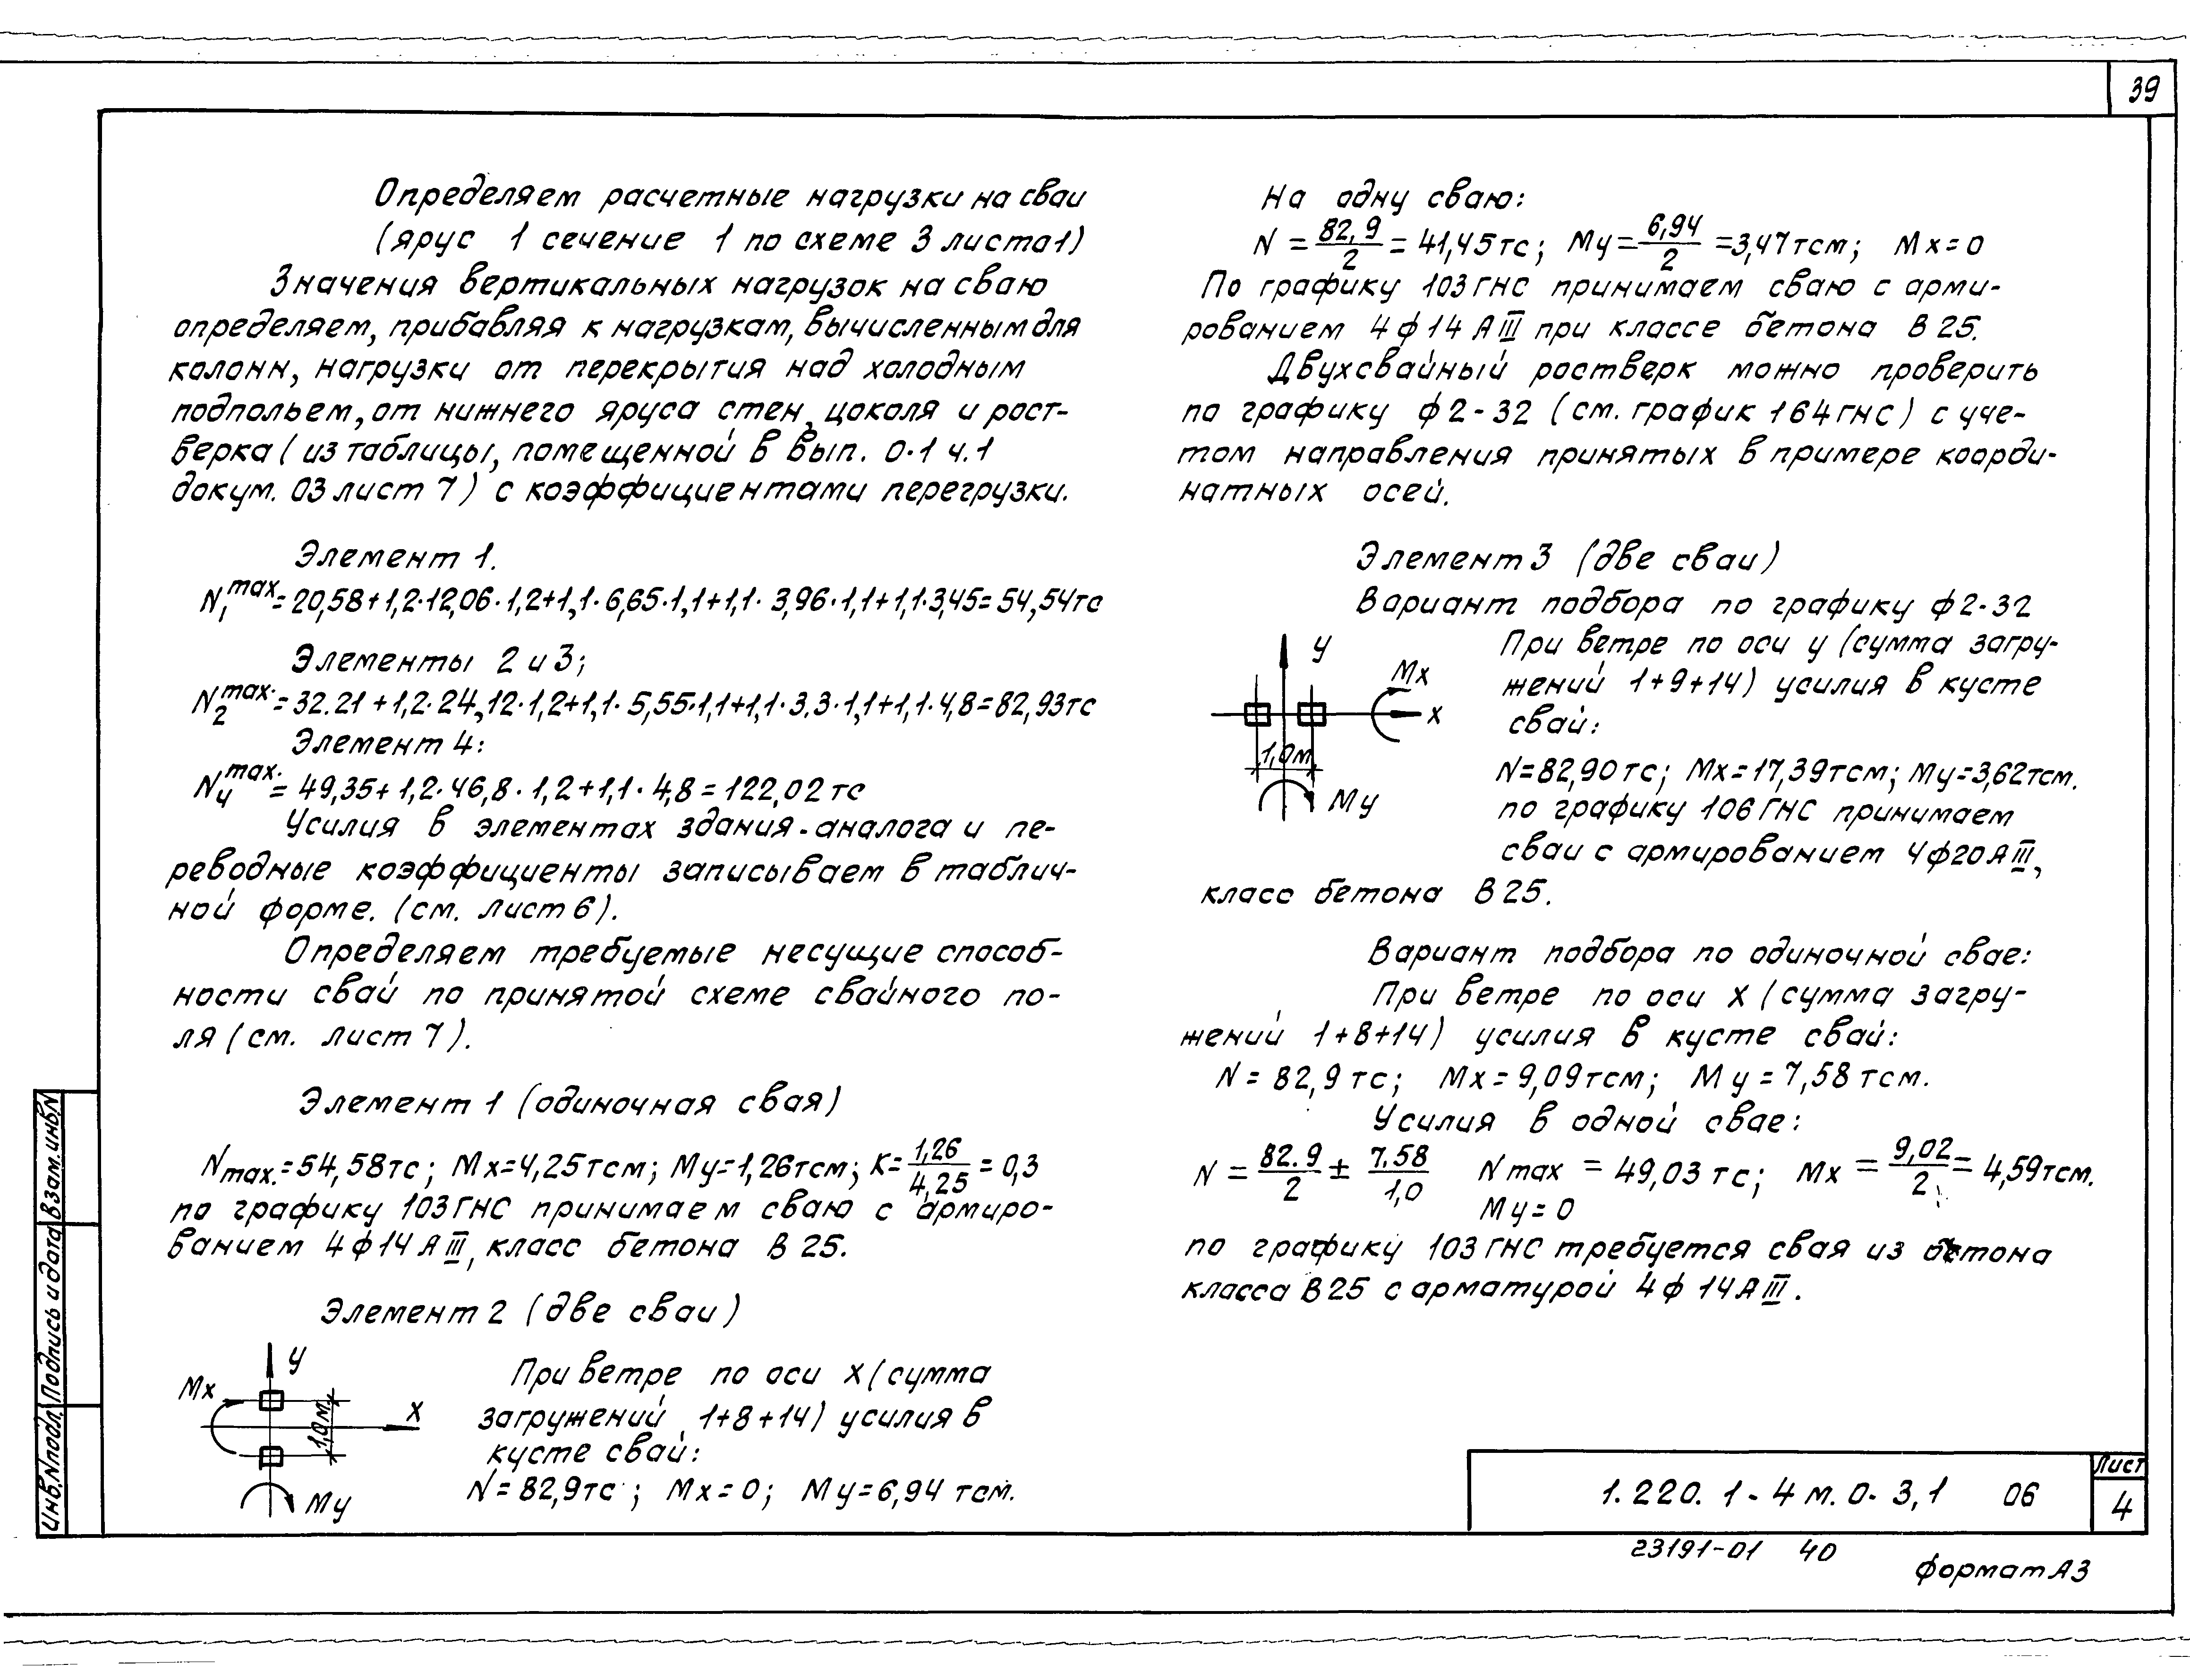 39
Определяем расчетные нагрузки на сваи
(ярус 1 сечение 1 по схеме 3 листа 1)
Значения вертикальных нагрузок на сваю
определяем, прибавляя к нагрузкам, вычисленным для
колонн, нагрузки от перекрытия над холодным
подпольем, от нижнего яруса стен, цоколя и рост-
верка (из таблицы, помещенной в вып. 0-1 ч.1
докум. 03 лист 7) с коэффициентами перегрузки.
Элемент 1.
N₁ max. = 20,58+1,2·12,06·1,2+1,1·6,65·1,1+1,1·3,96·1,1+1,1·3,45=54,54тс
Элементы 2 и 3;
N₂ max. = 32.21+1,2·24,12·1,2+1,1·5,55·1,1+1,1·3.3·1,1+1,1·4,8=82,93тс
Элемент 4:
N₄ max. = 49,35+1,2·46,8·1,2+1,1·4,8=122,02тс
Усилия в элементах здания-аналога и пе-
реводные коэффициенты записываем в таблич-
ной форме. (см. лист 6).
Определяем требуемые несущие способ-
ности свай по принятой схеме свайного по-
ля (см. лист 7).
Элемент 1 (одиночная свая)
Nmax.=54,58тс; Mx=4,25тсм; My=1,26тсм; K=1,26/4,25=0,3
по графику 103ГНС принимаем сваю с армиро-
ванием 4ф14АIII, класс бетона В25.
Элемент 2 (две сваи)
y
Mx
x
1,0м
My
При ветре по оси x (сумма
загружений 1+8+14) усилия в
кусте свай:
N=82,9тс; Mx=0; My=6,94 тсм.
На одну сваю:
N=82,9/2=41,45тс; My=6,94/2=3,47тсм; Mx=0
По графику 103ГНС принимаем сваю с арми-
рованием 4ф14АIII при классе бетона В25.
Двухсвайный ростверк можно проверить
по графику ф2-32 (см. график 164ГНС) с уче-
том направления принятых в примере коорди-
натных осей.
Элемент 3 (две сваи)
Вариант подбора по графику ф2-32
y
Mx
x
1,0м
My
При ветре по оси y (сумма загру-
жений 1+9+14) усилия в кусте
свай:
N=82,90тс; Mx=17,39тсм; My=3,62тсм.
по графику 106ГНС принимаем
сваи с армированием 4ф20АIII,
класс бетона В25.
Вариант подбора по одиночной свае:
При ветре по оси x (сумма загру-
жений 1+8+14) усилия в кусте свай:
N=82,9тс; Mx=9,09тсм; My=7,58тсм.
Усилия в одной свае:
N=82.9/2±7.58/1,0 Nmax=49,03тс; Mx=9,02/2=4,59тсм.
My=0
по графику 103ГНС требуется свая из бетона
класса В25 с арматурой 4ф14АIII.
Взам.инв.N
Подпись и дата
Инв.Nподл.
1.220.1-4м.0-3,1 06
Лист
4
23191-01 40
формат А3